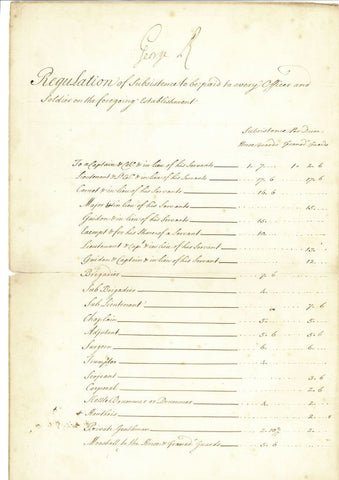 George R
Regulation of Subsistence to be paid to every Officer and
Soldier on the foregoing Establishment
Subsistence Per Diem
Horse Guards Grenad.r Guards
To a Captain & in lieu of his Servants 1. 7. 1. 2. 6
Lieutenant & in lieu of his Servants 17. 6 17. 6
Cornet & in lieu of his Servants 16. 6
Major & in lieu of his Servants 15.
Guidon & in lieu of his Servants 15.
Exempt & for his Share of a Servant 12.
Lieutenant & Cap.t & in lieu of his Servant 15.
Guidon & Captain & in lieu of his Servant 12.
Brigadier 7. 6
Sub Brigadier
Sub Lieutenant 7. 6
Chaplain 5. 5.
Adjutant 5. 6 5. 6
Surgeon 6. 6.
Trumpeter
Serjeant 3. 6
Corporal 2. 6
Kettle Drummer or Drummer 2.
Hautbois 2.
Private Gentleman 2.
Marshall to the Horse & Grenad.r Guards 5. 6